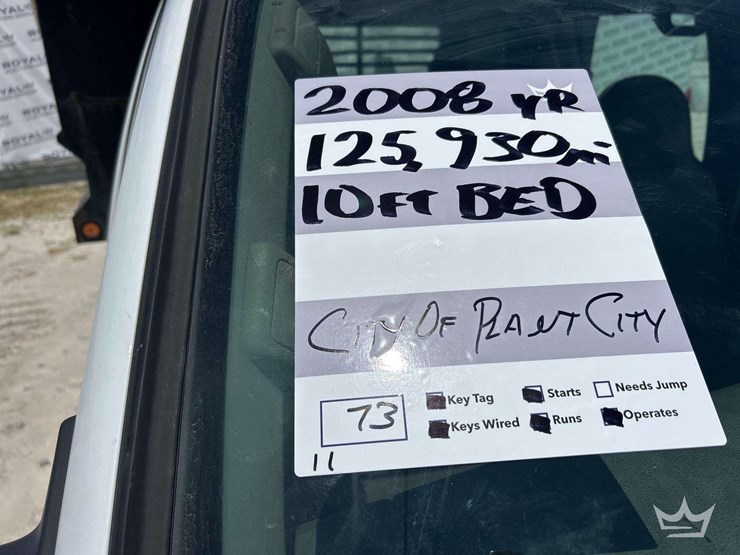 2008 YR
125,930mi
10FT BED
CITY OF PLANT CITY
73
Key Tag
Starts
Needs Jump
Keys Wired
Runs
Operates
11
ROYAL